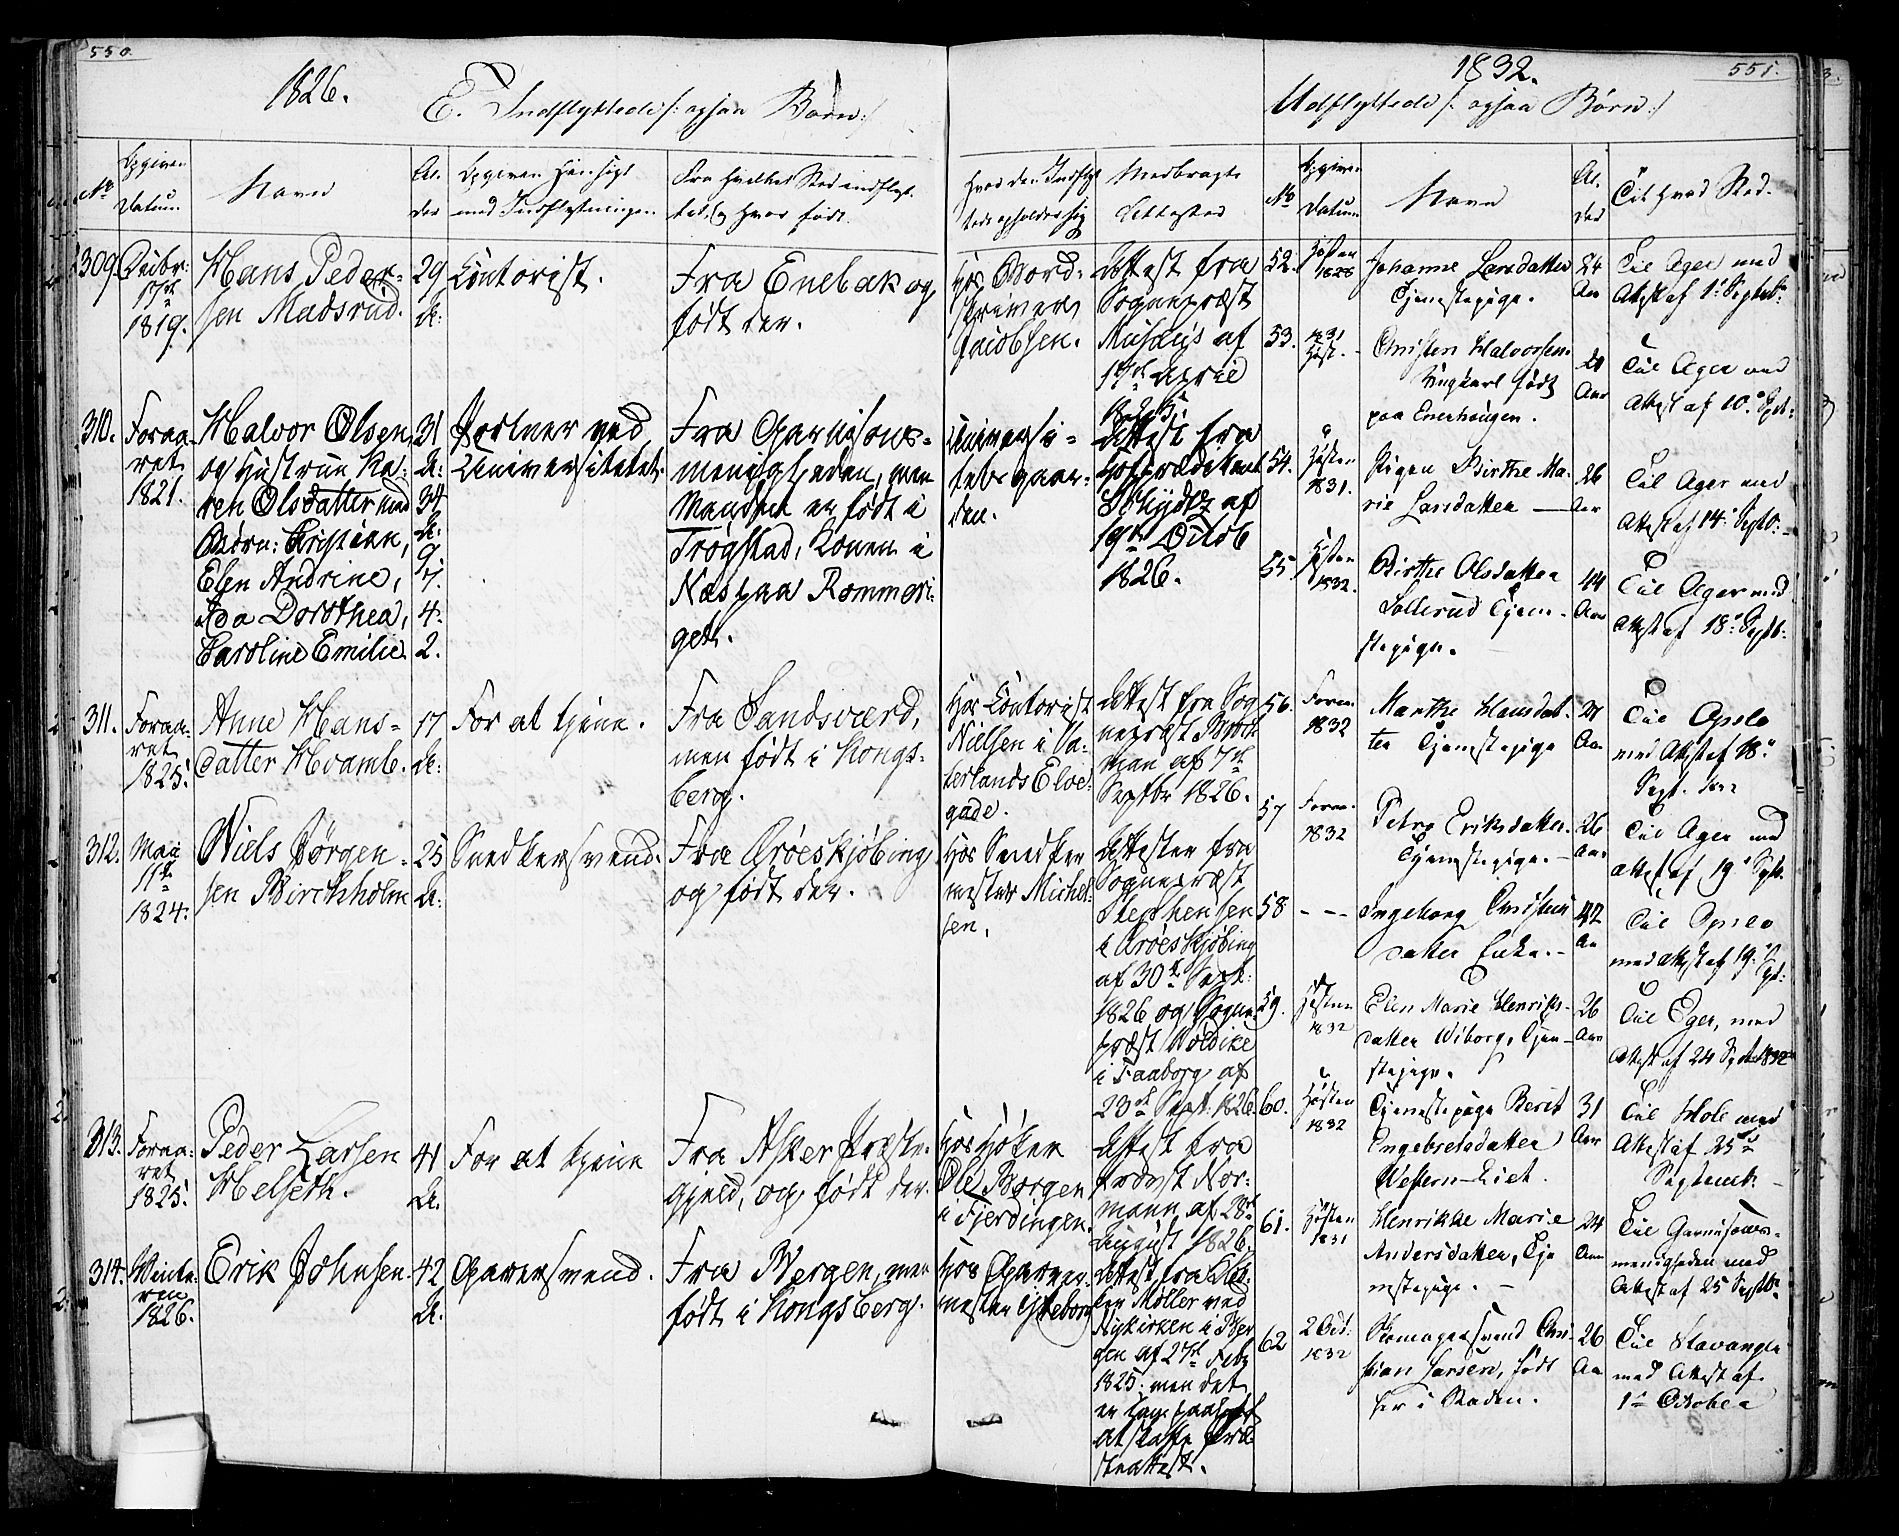 550.
1826.
E. Indflyttede /: ogsaa Børn :/
No
Opgiven
Datum.
Navn
Al-
der
Opgiven Hensigt
med Indflytningen.
Fra hvilket Sted indflyt-
tet, og hvor født.
Hvor den Indflyt-
tede opholder sig
Medbragte
Attester
309.
Octbr:
17de
1819.
Hans Peder-
sen Madsrud.
29
A:
Contorist.
Fra Enebak og
født der.
Hos Bord-
skriver
Jacobsen.
Attest fra
Sognepræst
Musæus af
april
310.
Foraa-
ret
1821.
Halvor Olsen,
og Hustrue Ka-
ren Olsdatter med
Børn: Christian,
Elen Andrine,
Ida Dorothea,
Caroline Emilie.
31
A:
34
A:
9.
7.
4.
2.
Portner ved
Universitetet.
Fra Garnisons-
menigheden, men
Manden er født i
Trøgstad, Konen i
Næs paa Rommeri-
get.
Universi-
tets gaar-
den.
Attest fra
Hofprædikant
af
19de Octob
1826.
311.
Foraa-
ret
1825.
Anne Hans-
datter Hvamb.
17
A:
For at tjene.
Fra Sandsværd,
men født i Kongs-
berg.
Hos Contorist
Nielsen i Va-
terlands Elve-
gade.
Attest fra Sog
nepræst Broch
man af 7de
Septbr 1826.
312.
Maii
11te
1824.
Niels Jørgen-
sen Birckholm
25
A:
Snedkersvend.
Fra Ærøeskjøbing
og født der.
Hos Snedker
mester Michel-
sen.
Attester fra
Sognepræst
Stephensen
i Ærøeskjøbing
af 30te Sept:
1826 og Sogne-
præst Woldike
i Faaborg af
23de Sept: 1826.
313.
Foraa-
ret
1825.
Peder Larsen
Helseth.
41
A.
For at tjene
Fra Asker Præste-
gjeld, og født der.
Hos Høker
Ole Borgen
i Fjerdingen.
Attest fra
Provst Nor-
mann af 28de
August 1826.
314.
Winte-
ren
1826.
Erik Johnsen.
42
A.
Garversvend.
Fra Bergen, men
født i Kongsberg.
Hos Garver-
mester
Attest fra
Møller ved
Nykirken i Ber
gen af 27de Feb
1825. men det
er ham paalagt
at skaffe Præ-
steattest.
1832.
551.
Udflyttede /: ogsaa Børn :/
No
Opgiven
Datum
Navn
Al-
der
Til hvad Sted.
52.
Høsten
1828
Johanne Larsdatter
Tjenestepige.
24
Aar
Til Ager med
Attest af 1ste Septbr.
53.
1831
Høst.
Christen Halvorsen
Ungkarl født
paa Enerhaugen.
Aar
Til Ager med
Attest af 10de Sept:
54.
Høsten
1831.
Pigen Birthe Ma-
rie Larsdatter
26
Aar
Til Ager med
Attest af 14de Septb:
55.
Høsten
1832.
Birthe Olsdatter
Sollerud Tjene-
stepige.
44
Aar
Til Ager med
Attest af 18de Septb:
56.
Foraa.
1832
Marthe Hansdat-
ter Tjenestepige
Aar
Til Opslo
med Attest af 18de
Sept.
57
Foraa.
1832
Petra Eriksdatter
Tjenestepige.
26
Aar
Til Ager med
Attest af 19de Septb.
58
- - -
Ingeborg Christens
datter Enke.
42
Aar
Til Opslo
med Attest af 19de
Sept:
59.
Høsten
1832
Elen Marie Henriks-
datter Wiborg, Tjene-
stepige.
26
Aar
Til Eger, med
Attest af 24 Septb 1832
60.
Høsten
1832
Tjenestepige Berit
Engebretsdatter
Western-Eiet.
31
Aar
Til Hole med
Attest af 25de
Septemb.
61.
Høsten
1831
Henrikke Marie
Andersdatter, Tje
nestepige.
24
Aar
Til Garnisons-
menigheden med
Attest af 25 Septbr.
62
2 Oct.
1832
Skomagersvend Chri-
stian Larsen, født
her i Staden.
26
Aar
Til Stavanger
med Attest af
1ste October